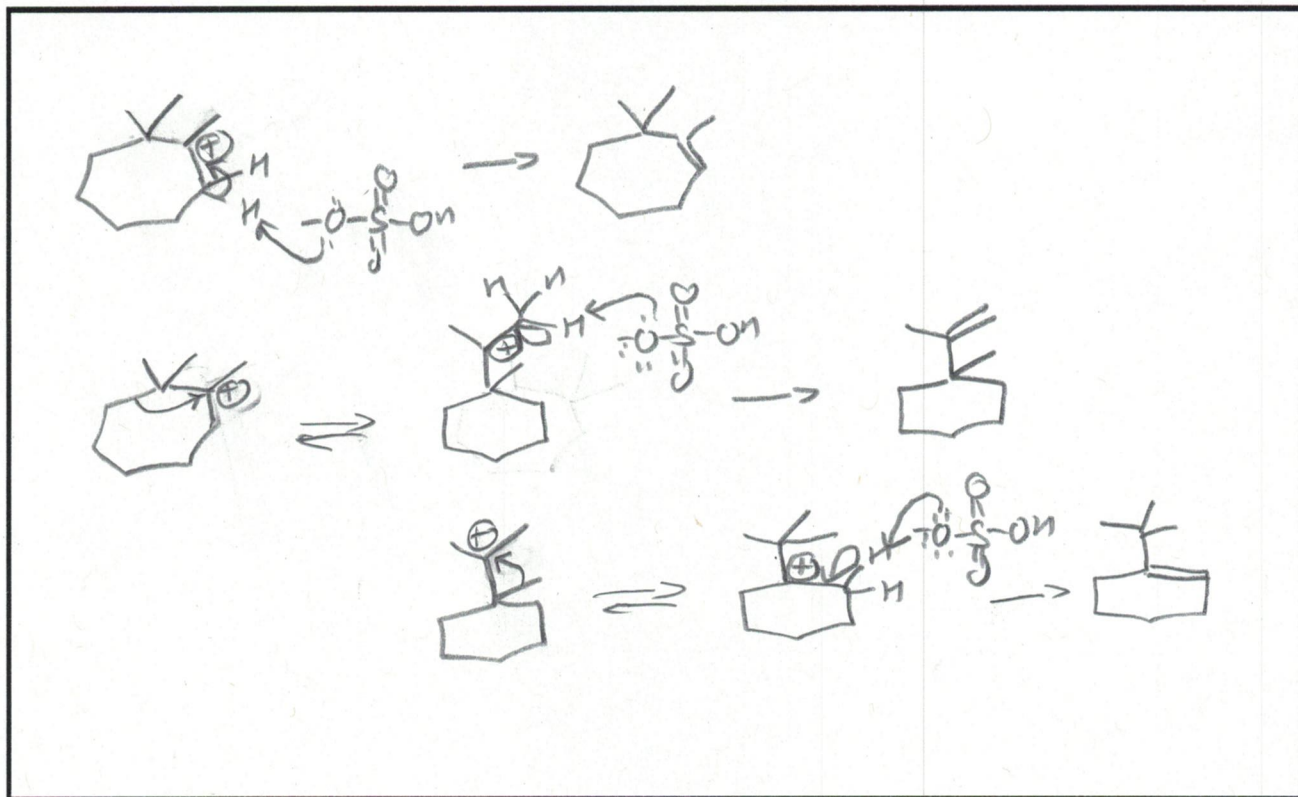 ⊕ H
H −:Ö−S−OH
O
O
H H
⊕ H :Ö−S−OH
O
O
⊕
⊕
⊕ H :Ö−S−OH
O
O
H